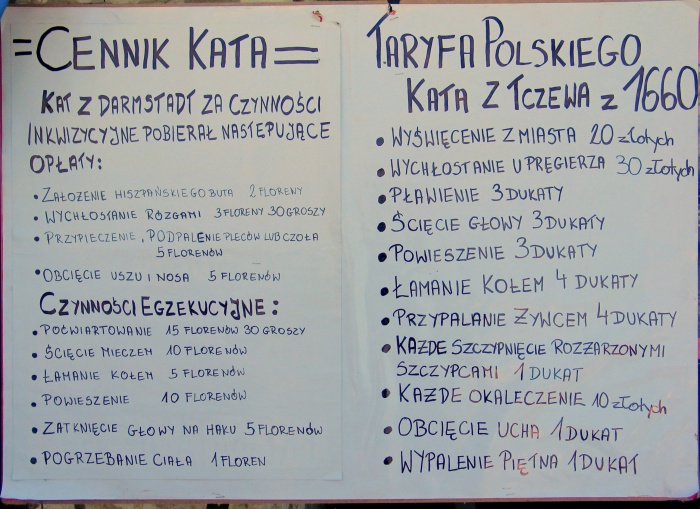 =CENNIK KATA=
KAT Z DARMSTADT ZA CZYNNOŚCI
INKWIZYCYJNE POBIERAŁ NASTĘPUJĄCE
OPŁATY:
• ZAŁOŻENIE HISZPAŃSKIEGO BUTA 2 FLORENY
• WYCHŁOSTANIE RÓZGAMI 3 FLORENY 30 GROSZY
• PRZYPIECZENIE, PODPALENIE PLECÓW LUB CZOŁA
5 FLORENÓW
• OBCIĘCIE USZU I NOSA 5 FLORENÓW
CZYNNOŚCI EGZEKUCYJNE:
• POĆWIARTOWANIE 15 FLORENÓW 30 GROSZY
• ŚCIĘCIE MIECZEM 10 FLORENÓW
• ŁAMANIE KOŁEM 5 FLORENÓW
• POWIESZENIE 10 FLORENÓW
• ZATKNIĘCIE GŁOWY NA HAKU 5 FLORENÓW
• POGRZEBANIE CIAŁA 1 FLOREN
TARYFA POLSKIEGO
KATA Z TCZEWA Z 1660
• WYŚWIĘCENIE Z MIASTA 20 złotych
• WYCHŁOSTANIE U PRĘGIERZA 30 złotych
• PŁAWIENIE 3 DUKATY
• ŚCIĘCIE GŁOWY 3 DUKATY
• POWIESZENIE 3 DUKATY
• ŁAMANIE KOŁEM 4 DUKATY
• PRZYPALANIE ŻYWCEM 4 DUKATY
• KAŻDE SZCZYPNIĘCIE ROZŻARZONYMI
SZCZYPCAMI 1 DUKAT
• KAŻDE OKALECZENIE 10 złotych
• OBCIĘCIE UCHA 1 DUKAT
• WYPALENIE PIĘTNA 1 DUKAT